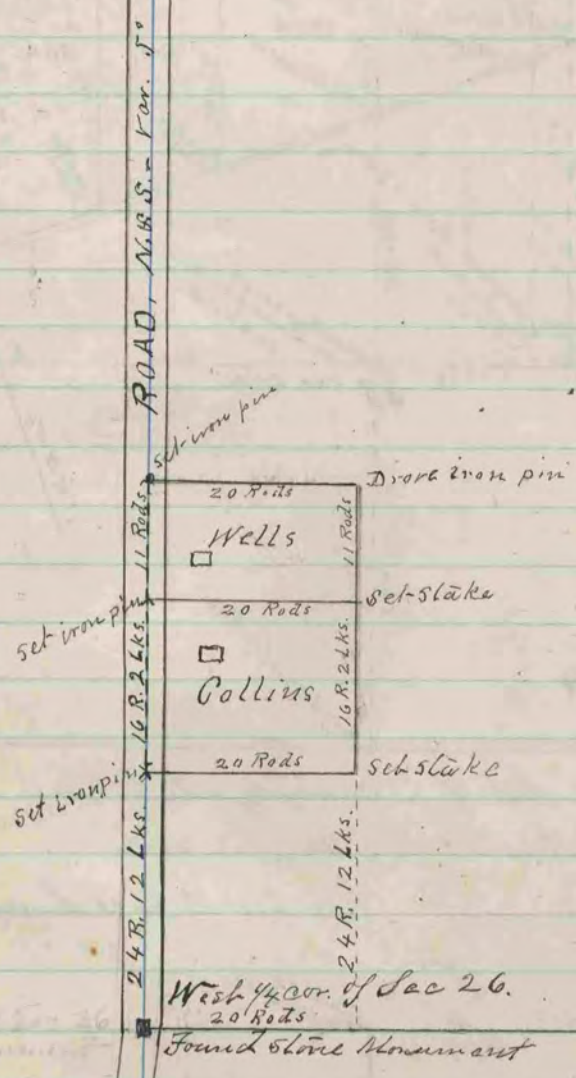 ROAD, N. & S. - Var. 5°
set iron pin
20 Rods
Drove iron pin
11 Rods
Wells
11 Rods
set iron pin
20 Rods
Set Stake
16 R. 2 Lks.
Collins
16 R. 2 Lks.
set iron pin
20 Rods
Set Stake
24 R. 12 Lks.
24 R. 12 Lks.
West 1/4 cor. of Sec 26.
20 Rods
Found Stone Monument